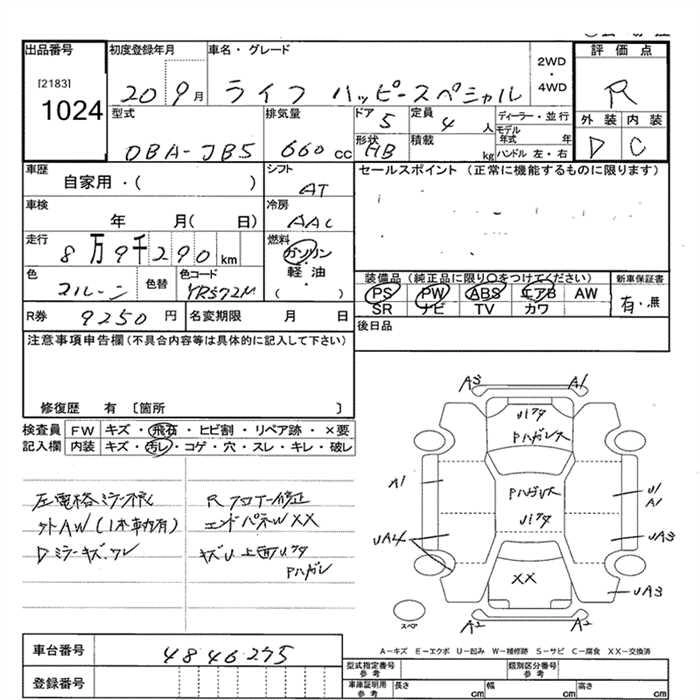 出品番号 初度登録年月 車名・グレード 2WD・4WD 評価点
[2183]
1024 20 9月 ライフ ハッピースペシャル R
型式 排気量 ドア 定員 ディーラー・並行 外装 内装
DBA-JB5 660cc 5 4人 モデル年式 年
形状 HB 積載 kg ハンドル 左・右 D C
車歴 シフト セールスポイント(正常に機能するものに限ります)
自家用・( ) AT
車検 冷房
年 月( 日) AAC
走行 燃料
8万9千290km ガソリン
軽油
( )
装備品(純正品に限り〇をつけてください) 新車保証書
色 色替 色コード YR572M PS PW ABS エアB AW 有・無
SR ナビ TV カワ
R券 9250円 名変期限 月 日 後日品
注意事項申告欄(不具合内容等は具体的に記入して下さい)
修復歴 有〔箇所 〕
検査員 FW キズ・飛石・ヒビ割・リペア跡・×要
記入欄 内装 キズ・汚レ・コゲ・穴・スレ・キレ・破レ
A3 A1
Pハガレ
A1 Pハガレ U1
A1
UA4 UA3
XX UA3
スペ A2 A2
左電格ミラー不良 Rフロアー修正
社外AW(1本車内有) エンドパネルW XX
Dミラーキズ、ワレ キズU 上面
Pハガレ
車台番号 4846275
登録番号
A-キズ E-エクボ U-凹み W-補修跡 S-サビ C-腐食 XX-交換済
型式指定番号 参考 類別区分番号 参考
車庫証明用 参考 長さ cm 幅 cm 高さ cm